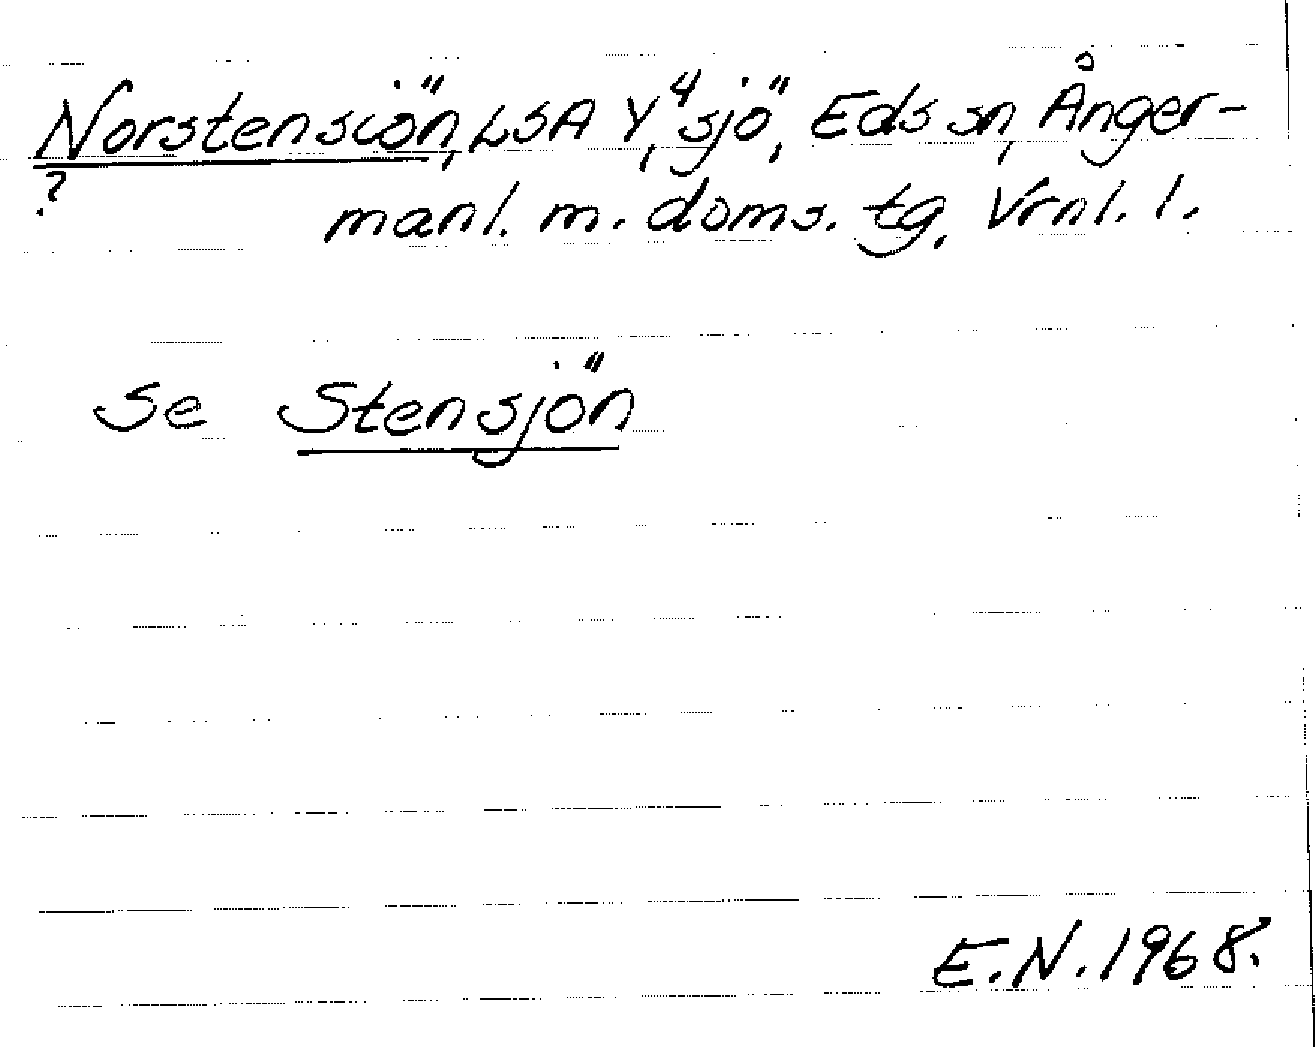 Norstensiön, LSA Y4, sjö, Eds sn, Ånger-
?
manl. m. doms. tg, Vrnl. l.
Se Stensjön
E.N. 1968.